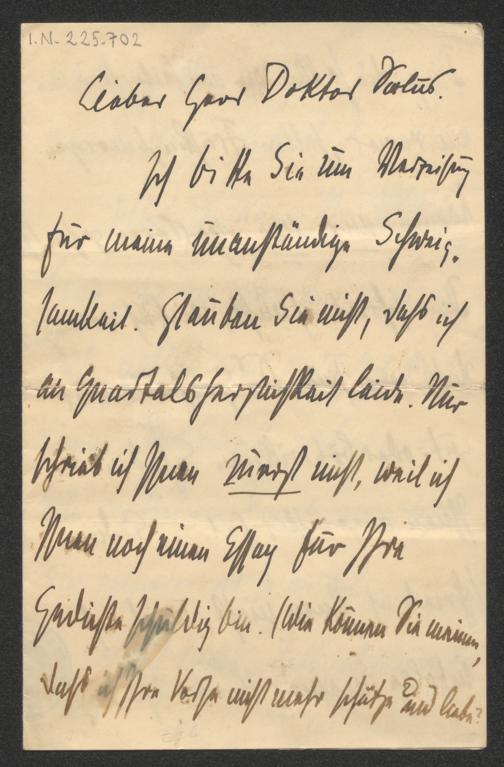 I.N. 225.702
Lieber Herr Doktor Salus.
Ich bitte Sie um Verzeihung
für meine unanständige Schweig-
samkeit. Glauben Sie nicht, dass ich
an Quartalsherzlichkeit leide. Nur
schrieb ich Ihnen zuerst nicht, weil ich
Ihnen noch einen Essay für Ihre
Gedichte schuldig bin. (Wie können Sie meinen,
dass ich Ihre Verse nicht mehr schätze und liebe?